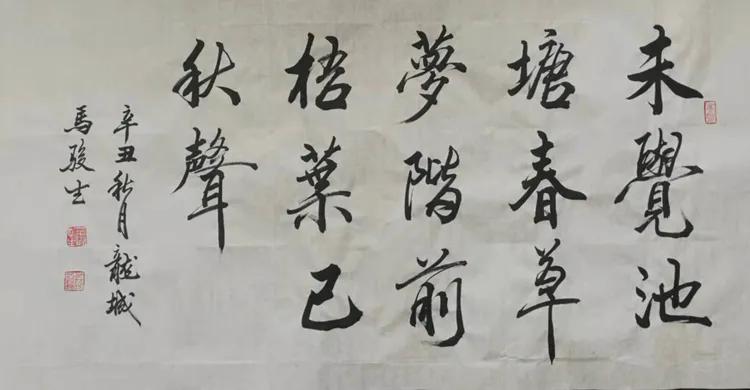 未覺池
塘春草
夢階前
梧葉已
秋聲
辛丑秋月龍城
馬駿生